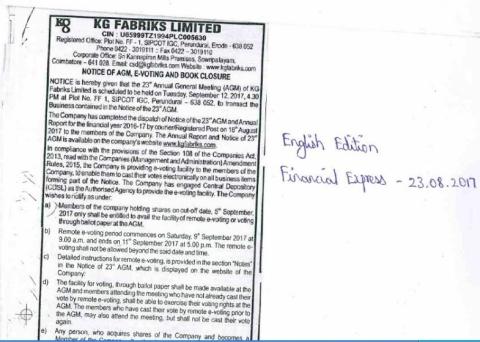 KG KG FABRIKS LIMITED
CIN : U65999TZ1994PLC005630
Registered Office: Plot No. FF - 1, SIPCOT IGC, Perundurai, Erode - 638 052
Phone 0422 - 3019111 :: Fax 0422 - 3019110
Corporate Office: Sri Kannapiran Mills Premises, Sowripalayam,
Coimbatore - 641 028. Email: csd@kgfabriks.com Website : www.kgfabriks.com
NOTICE OF AGM, E-VOTING AND BOOK CLOSURE
NOTICE is hereby given that the 23rd Annual General Meeting (AGM) of KG
Fabriks Limited is scheduled to be held on Tuesday, September 12, 2017, 4.30
PM at Plot No. FF 1, SIPCOT IGC, Perundurai - 638 052, to transact the
Business contained in the Notice of the 23rd AGM.
The Company has completed the dispatch of Notice of the 23rd AGM and Annual
Report for the financial year 2016-17 by courier/Registered Post on 18th August
2017 to the members of the Company. The Annual Report and Notice of 23rd
AGM is available on the company's website www.kgfabriks.com.
In compliance with the provisions of the Section 108 of the Companies Act,
2013, read with the Companies (Management and Administration) Amendment
Rules, 2015, the Company is providing e-voting facility to the members of the
Company, to enable them to cast their votes electronically on all business items
forming part of the Notice. The Company has engaged Central Depository
(CDSL) as the Authorised Agency to provide the e-voting facility. The Company
wishes to notify as under:
a) Members of the company holding shares on cut-off date, 5th September,
2017 only shall be entitled to avail the facility of remote e-voting or voting
through ballot paper at the AGM.
b) Remote e-voting period commences on Saturday, 9th September 2017 at
9.00 a.m. and ends on 11th September 2017 at 5.00 p.m. The remote e-
voting shall not be allowed beyond the said date and time.
c) Detailed instructions for remote e-voting, is provided in the section "Notes"
in the Notice of 23rd AGM, which is displayed on the website of the
Company.
d) The facility for voting, through ballot paper shall be made available at the
AGM and members attending the meeting who have not already cast their
vote by remote e-voting, shall be able to exercise their voting rights at the
AGM. The members who have cast their vote by remote e-voting prior to
the AGM, may also attend the meeting, but shall not be cast their vote
again.
e) Any person, who acquires shares of the Company and becomes a
English Edition
Financial Express - 23.08.2017